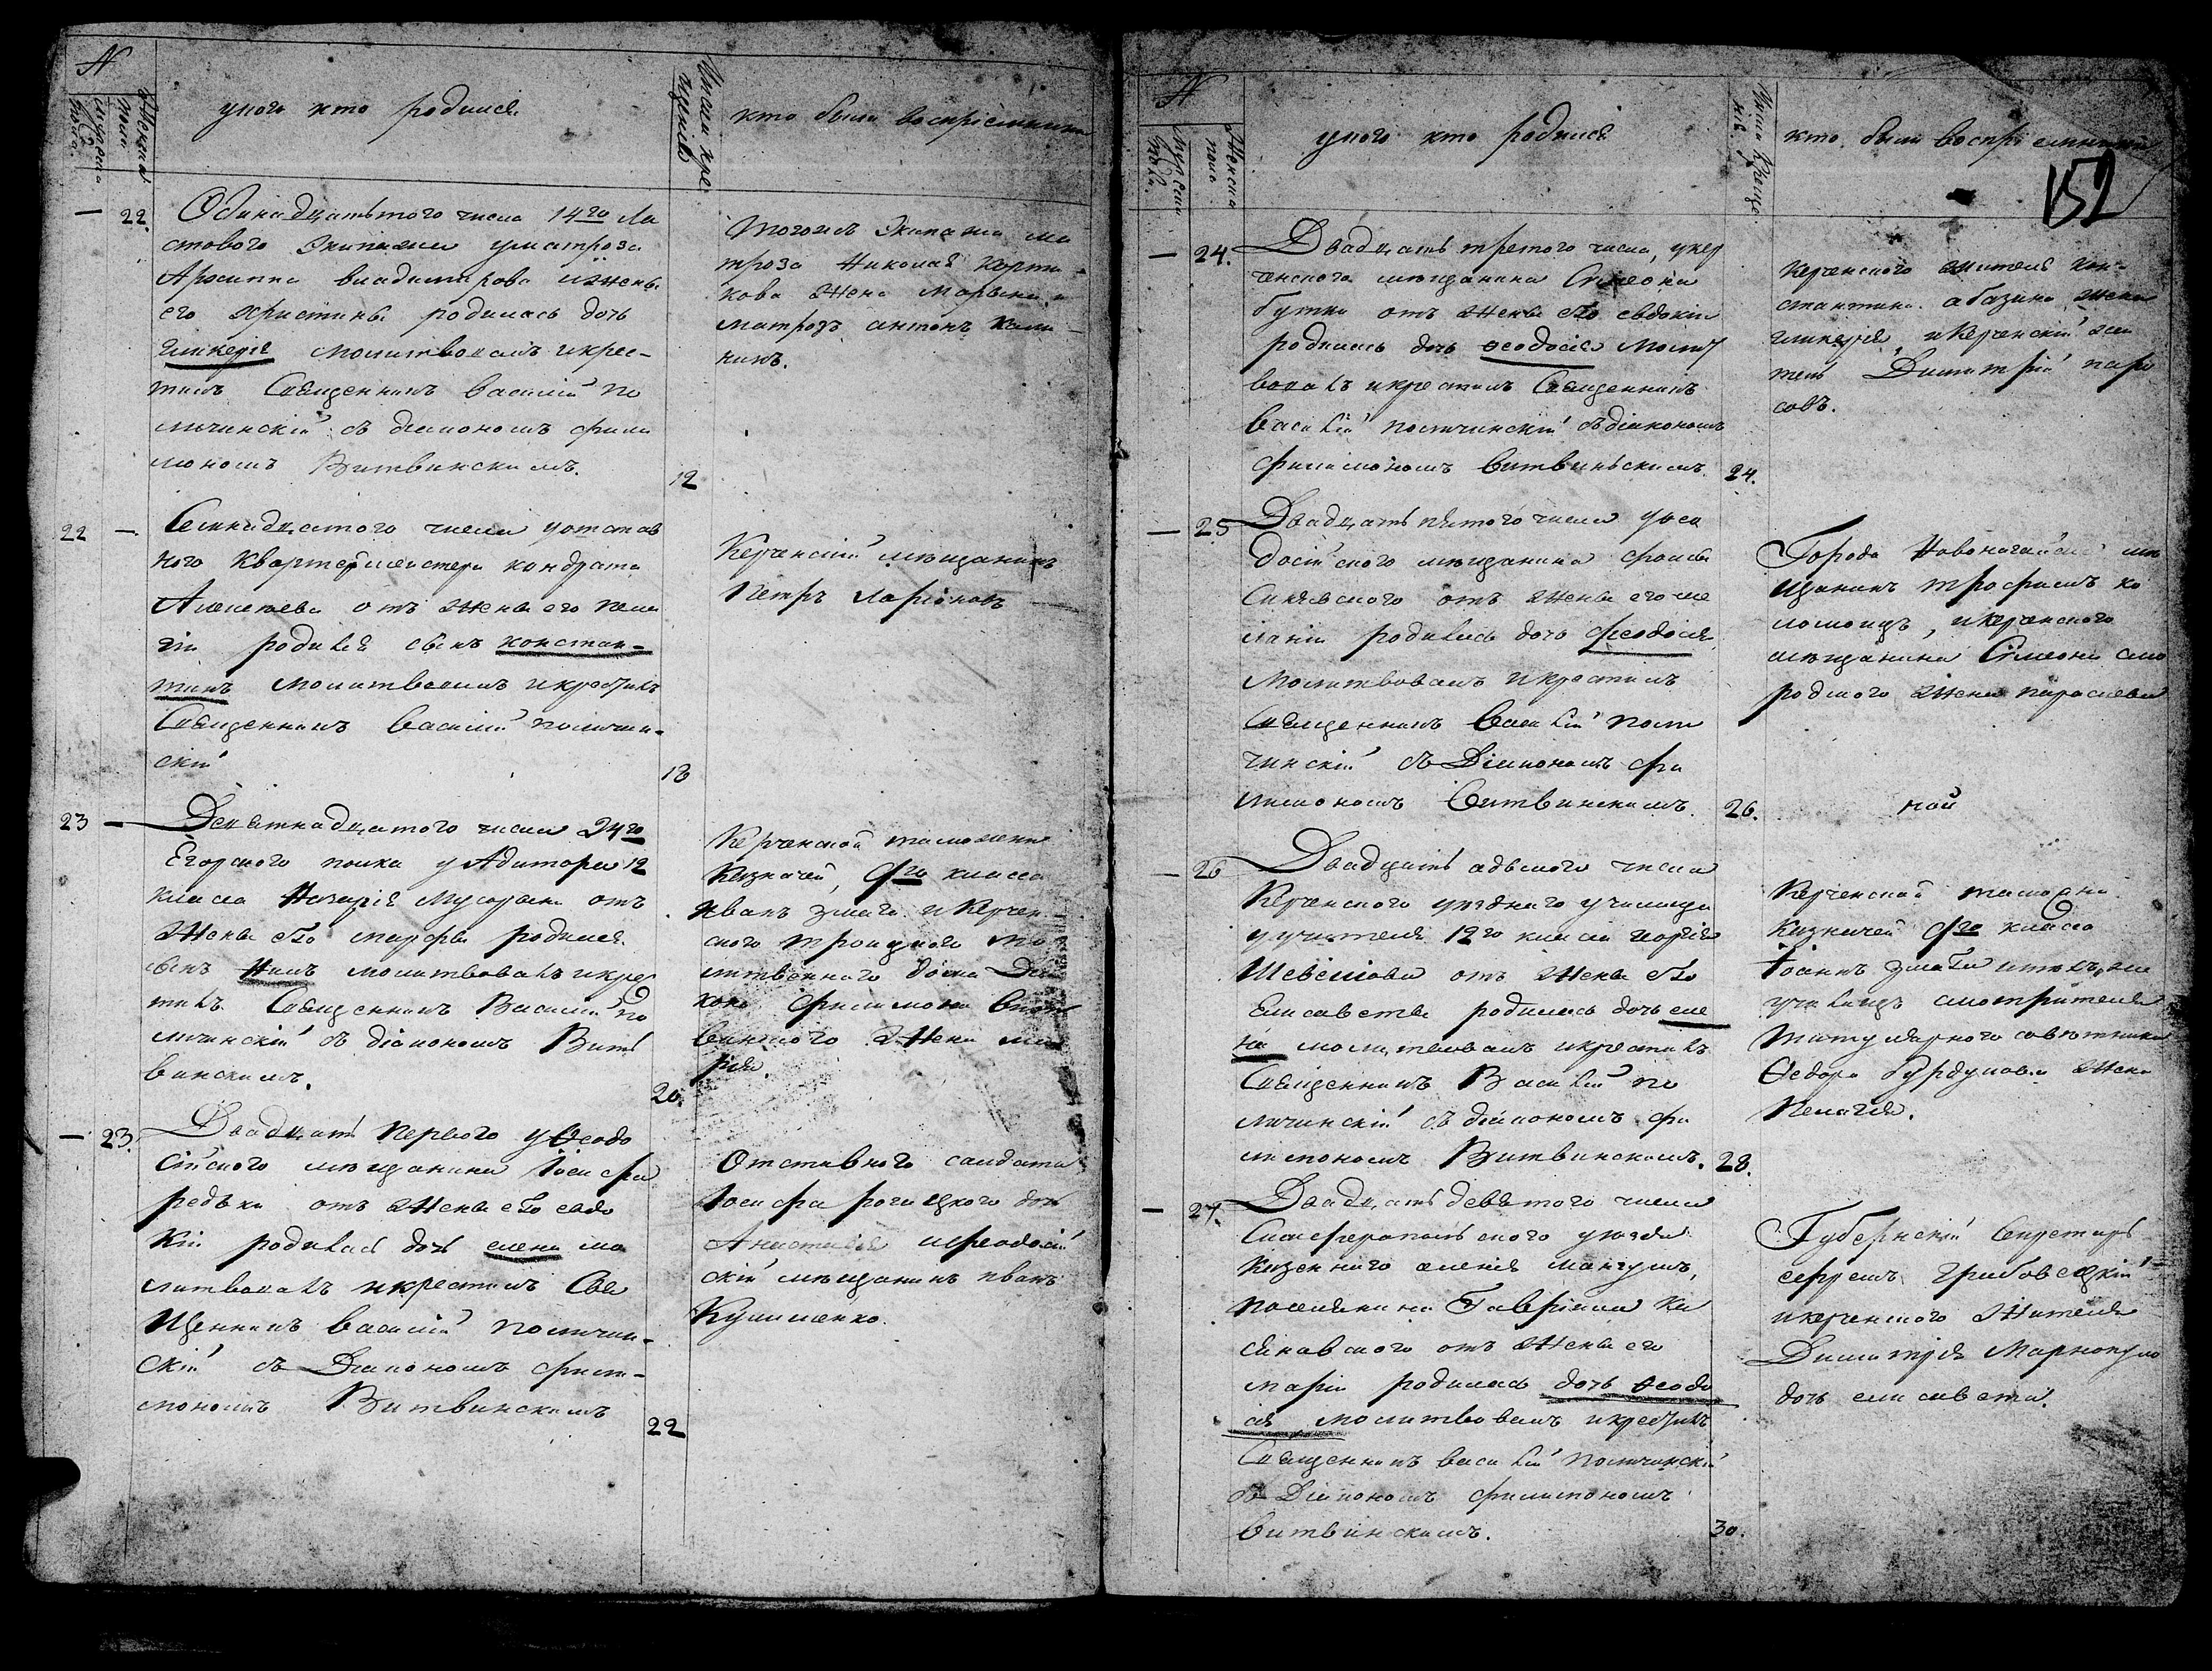 №
Мужеска пола.
Женска пола
у кого кто родился
Числа крещения
кто были восприемники
— 22. Одинадцатьтого числа 14го Ла
стового Экипажа у матроза
Архиппа владимирова и жены
его христины родилась дочь
гликерія молитвовалъ и крес-
тилъ Священникъ василій По
личинскій съ діякономъ фили
мономъ Витвинскимъ.
12
Тогожъ Экипажа ма
троза Николая
жена Марьяна и
матрозъ антонъ кали-
нинъ.
22 — Семнадцатого числа у отстав
ного квартермистера кондрата
Алексеева отъ жены его пела
гіи родился сынъ констан-
тинъ молитвовалъ и крестилъ
Священникъ василій поличин-
скій
18
Керченскій мѣщанинъ
Петръ Ларіоновъ
23 — Девятнадцатого числа 24го
Егорского полка у Адитора 12
класса Назарія отъ
жены его марфы родился
сынъ Нилъ молитвовалъ и крес
тилъ Священникъ Василій по
личинскій съ діякономъ Вить
винскимъ.
20.
Керченской таможни
Казначей, 9го класса
иванъ и Керчен-
ского троицкого мо
литвенного дома Дья
кона филимона Вить
винского жена ма
рія.
— 23. Двадцать перваго у Ѳеодо
сійского мѣщанина Іосифа
редьки отъ жены его евдо
кіи родилась дочь елена мо
литвовалъ и крестилъ Свя
щенникъ василій поличин-
скій съ Діякономъ фили-
мономъ Витвинскимъ
22
Отставного салдата
Іосифа рогицкого дочь
Анастасія и феодосій
скій мѣщанинъ иванъ
Кулименко.
№
Мужеска пола.
Женска пола
у кого кто родился
Числа Креще
нія
кто были воспріемники
152
— 24. Двадцать третого числа, у кер
ченского мѣщанина Симеона
бутки отъ жены его евдокіи
родилась дочь ѳеодосія Молит
вовалъ и крестилъ Священникъ
Василій поличинскій съ діякономъ
филимономъ витвинскимъ.
24.
Керченского жителя кон-
стантина абазина жена
гликерія, и Керченскій жи
тель Димитрій
совъ.
— 25 Двадцать пятого числа у фео
досійского мѣщанина фомы
Синявского отъ жены его ме
ланіи родилась дочь феодосія
молитвовалъ и крестилъ
Священникъ Василій поли
чинскій съ Діякономъ фи
лимономъ Витвинскимъ.
26.
Города Новоногайска мѣ
щанинъ трофимъ ко
ломоецъ, и керченского
мѣщанина Симеона
жена параскева
ной
— 26 Двадцать адьмого числа
Керченского уезднаго училища
у учителя 12го класса георгія
Шевелiова отъ жены его
Елисаветы родилась дочь еле
на молитвовалъ и крестилъ
Священникъ Василій по
личинскій съ діякономъ фи
лимономъ Витвинскимъ.
28.
Керченской таможни
Казначей 9го класса
Іоаннъ и
училищъ смотрителя
титулярного советника
Ѳедора бурдунова жена
Пелагія.
— 27. Двадцать девятого числа
Симферопольского уезда
казенного имения мангушъ,
поселянина Гавріила Ки
яновского отъ жены его
маріи родилась дочь Ѳеодо
сія молитвовалъ и крестилъ
Священникъ василій поличинскій
съ Діякономъ филимономъ
Витвинскимъ.
30.
Губернскій Секретарь
ефремъ грибовецкій
и керченского жителя
Димитрія
дочь елисавета.